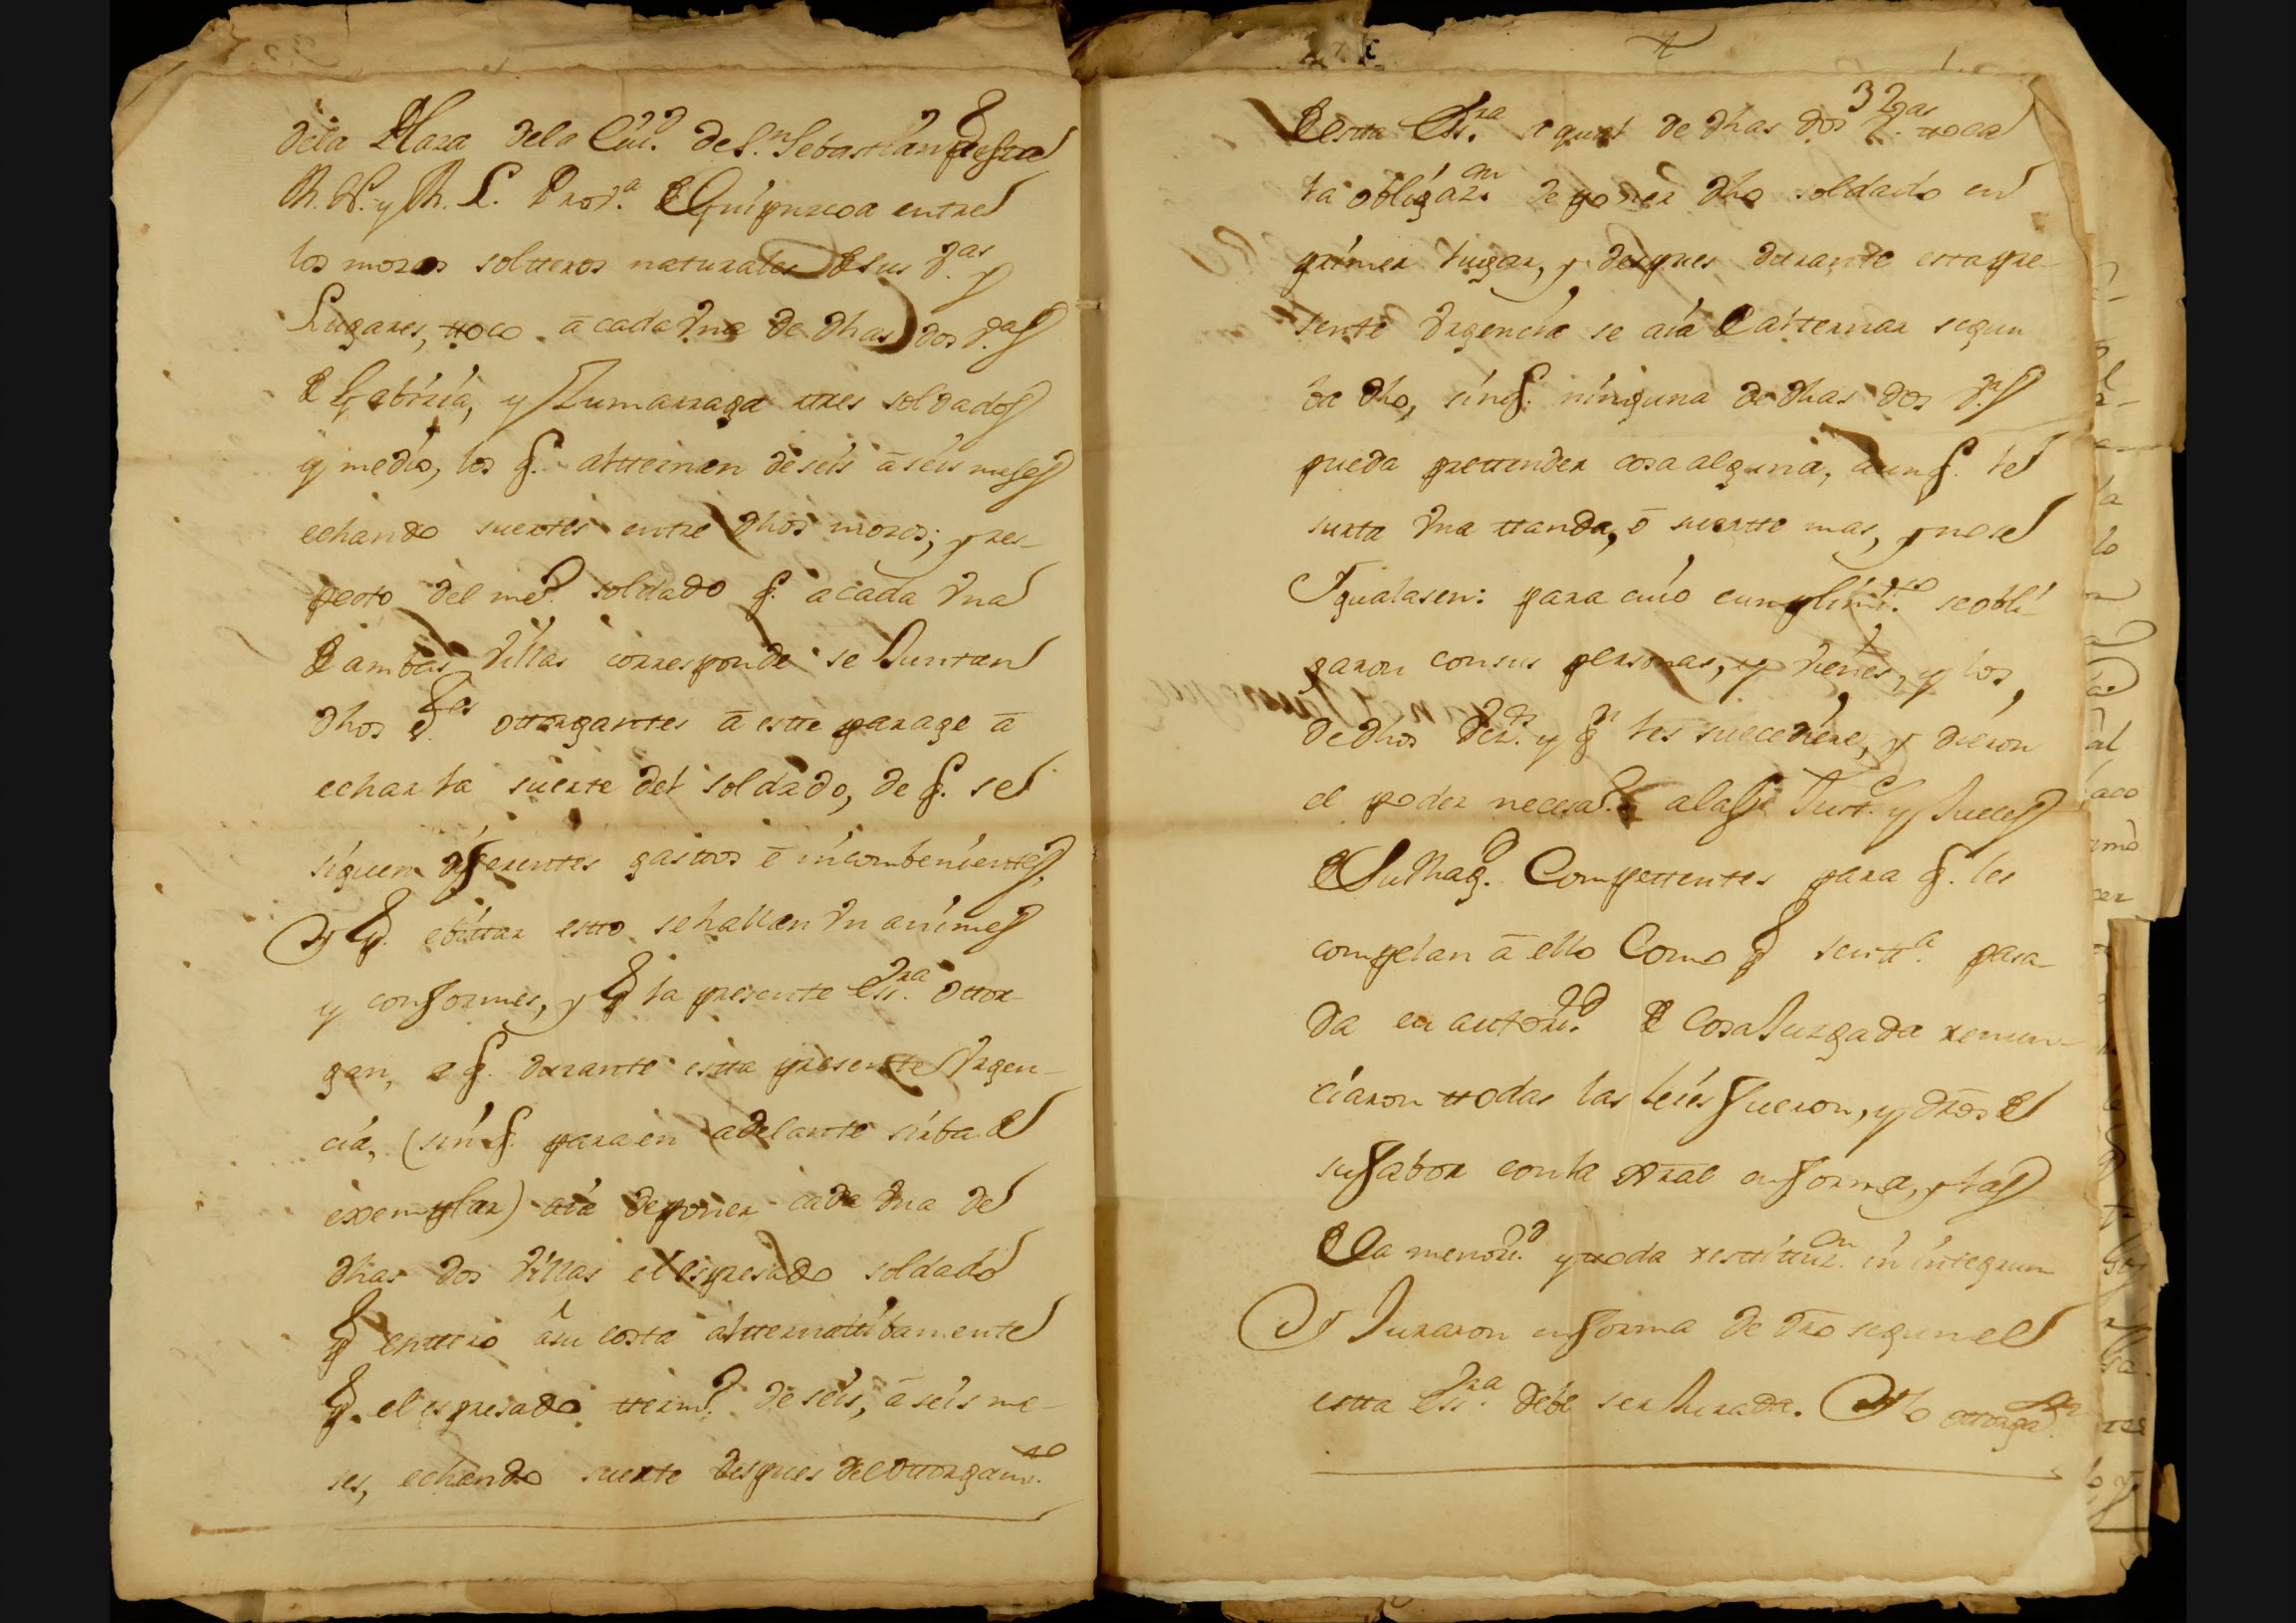 dela Plaza dela Ciud. de S.n Sebastian de esta
M. N. y M. L. Prov.a de Guipuzcoa entre
los mozos soltteros naturales de sus V.as y
Lugares, ttoco a cada Vna de dhas dos V.as
de Gabiria, y Zumarraga ttres soldados
y medio, los q. altternan de seis a seis meses
echando suertes entre dhos mozos; y res-
pecto del med.o soldado q. a cada Vna
de ambas Villas corresponde se Juntan
dhos S.res ottorgantes a estte parage a
echar la suerte del soldado, de q. se
siguen diferentes gasttos e incombenientes,
Y p.r ebittar estto se hallan Vnanimes
y conformes, y p.r la presente Ess.ra ottor-
gan, a q. durante estta presentte Vrgen-
cia, (sin q. para en adelante sirba de
exemplar) aia de poner cada Vna de
dhas dos Villas el espresado soldado
p.r enttero a su costa altternatibamente
p.r el espresado tterm.o de seis, a seis me-
ses, echando suerte despues del ottorgam.to
32
de estta Ess.ra a qual de dhas dos V.as ttoca
la obligaz.on de poner dho soldado en
primer lugar, y despues durante esta pre-
sente Vrgencia se aia de alternar segun
ba dho, sin q. ninguna de dhas dos V.s
pueda prettender cosa alguna, aunq. le
surta Vna ttanda, o suertte mas, y no se
Igualasen: para cuio cumplim.to se obli-
garon con sus personas, y vienes, y los
de dhos Vez.os y q.n les succediere, y dieron
el poder necesa.o a las Just.s y Jueces
de Su Mag.d Compettentes para q. les
compelan a ello Como p.r sentt.a pasa-
da en autori.d de Cosa Juzgada renun-
ciaron ttodas las leies fueron, y dros de
su fabor con la gral en forma, y las
de la menori.d y ttoda resttittuz.on in integrum
Y Juraron en forma de dro segun el
estta Ess.ra debe ser Jurada. Y lo ottorga.n